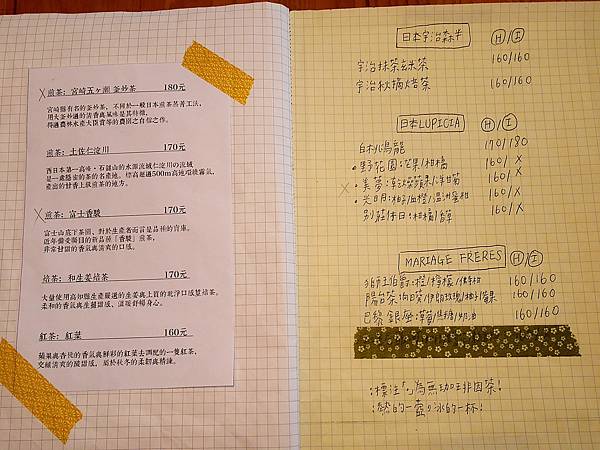 煎茶: 宮崎五ヶ瀬 釜炒茶 180元
宮崎縣有名的釜炒茶，不同於一般日本煎茶蒸菁工法，
用大釜炒過的清香與風味是其特徵，
得過農林水產大臣賞等的農園之自信之作。
煎茶: 土佐仁淀川 170元
西日本第一高峰・石鎚山的水源流域仁淀川の流域
是一處隱密的茶的名產地。標高超過500m高地環繞霧氣，
產出的甘香上級煎茶的地方。
煎茶: 富士香駿 170元
富士山底下茶園，對於生產者而言是品種的寶庫。
近年備受矚目的新品種「香駿」煎茶，
非常甘甜的香氣與清爽的口感。
焙茶: 和生姜焙茶 170元
大量使用高知縣生產嚴選的生姜與上質的乾淨口感莖焙茶。
柔和的香氣與生薑甜感，溫暖舒暢身心。
紅茶: 紅葉 160元
蘋果與杏桃的香氣與鮮彩的紅葉去調配的一隻紅茶，
交織清爽的酸甜感，屬於秋冬的柔韌與精鍊。
日本宇治森半 H/I
宇治抹茶玄米茶 160/160
宇治秋摘焙茶 160/160
日本LUPICIA H/I
白桃烏龍 170/180
•野花園:芒果/柑橘 160/X
•美夢:乾燥蘋果/洋甘菊 160/X
•光明:柚子/血橙/溫州蜜柑 160/X
別莊休日:柑橘/ 160/X
MARIAGE FRERES H/I
伯爵:橙/檸檬/佛手柑 160/160
160/160
巴黎銀座:莓/焦糖/奶油 160/160
:標注「•」為無咖啡因茶!
:熱的一壺 冰的一杯!